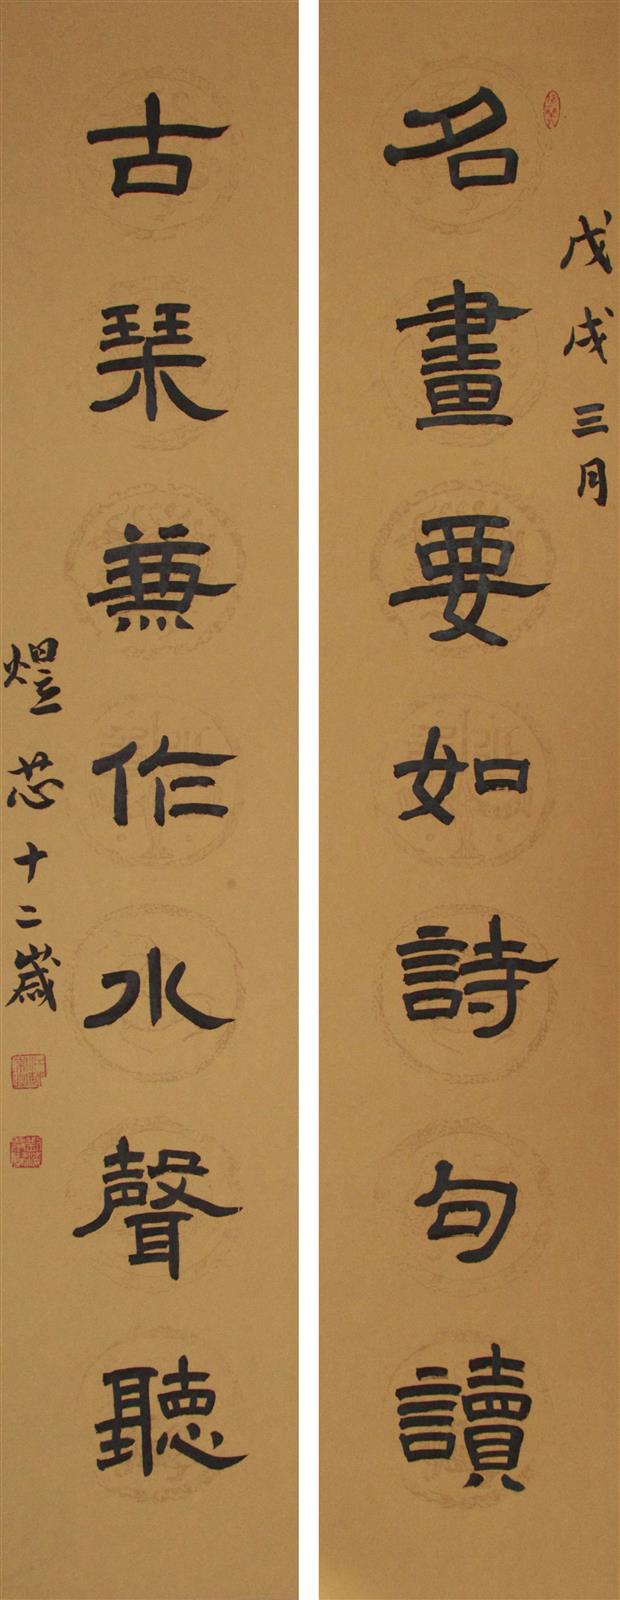 戊戌三月
名畫要如詩句讀
古琴兼作水聲聽
煜芯十二歲